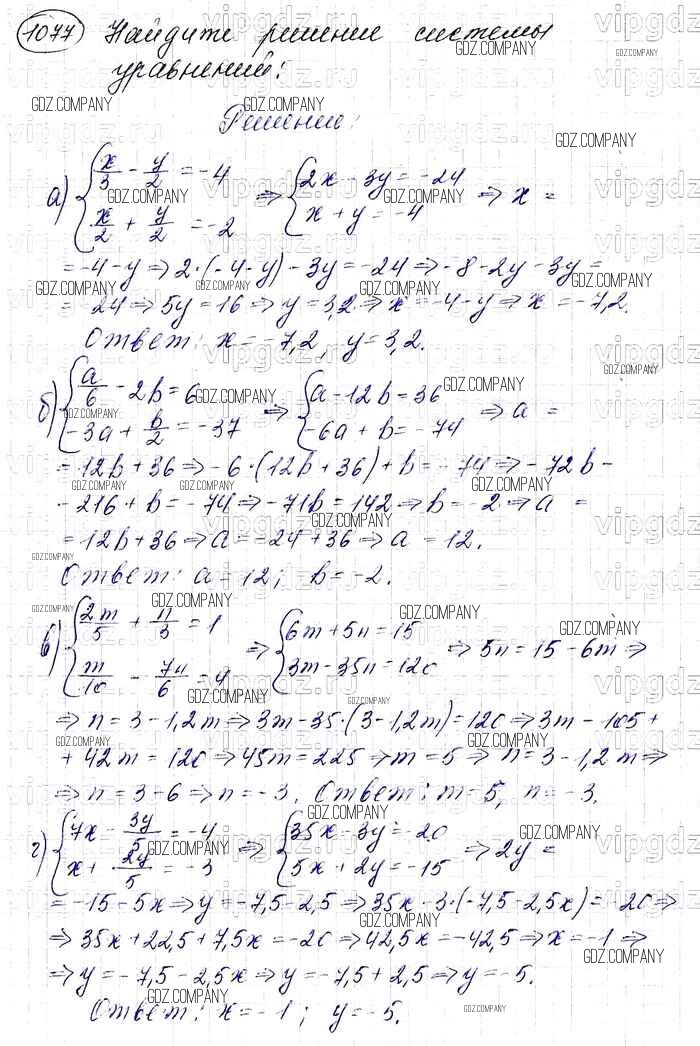 1077 Найдите решение системы
уравнений:
Решение:
а) { x/3 - y/2 = -4 ⇒ { 2x - 3y = -24 ⇒ x =
x/2 + y/2 = -2 x + y = -4
= -4 - y ⇒ 2·(-4-y) - 3y = -24 ⇒ -8 - 2y - 3y =
= -24 ⇒ 5y = 16 ⇒ y = 3,2 ⇒ x = -4 - y ⇒ x = -7,2.
Ответ: x = -7,2, y = 3,2.
б) { a/6 - 2b = 6 ⇒ { a - 12b = 36 ⇒ a =
-3a + b/2 = -37 -6a + b = -74
= 12b + 36 ⇒ -6·(12b + 36) + b = -74 ⇒ -72b -
- 216 + b = -74 ⇒ -71b = 142 ⇒ b = -2 ⇒ a =
= 12b + 36 ⇒ a = -24 + 36 ⇒ a = 12.
Ответ: a = 12; b = -2.
в) { 2m/5 + n/3 = 1 ⇒ { 6m + 5n = 15 ⇒ 5n = 15 - 6m ⇒
m/10 - 7n/6 = 4 3m - 35n = 120
⇒ n = 3 - 1,2m ⇒ 3m - 35·(3 - 1,2m) = 120 ⇒ 3m - 105 +
+ 42m = 120 ⇒ 45m = 225 ⇒ m = 5 ⇒ n = 3 - 1,2m ⇒
⇒ n = 3 - 6 ⇒ n = -3. Ответ: m = 5, n = -3.
г) { 7x - 3y/5 = -4 ⇒ { 35x - 3y = -20 ⇒ 2y =
x + 2y/5 = -3 5x + 2y = -15
= -15 - 5x ⇒ y = -7,5 - 2,5 ⇒ 35x - 3·(-7,5 - 2,5x) = -20 ⇒
⇒ 35x + 22,5 + 7,5x = -20 ⇒ 42,5x = -42,5 ⇒ x = -1 ⇒
⇒ y = -7,5 - 2,5x ⇒ y = -7,5 + 2,5 ⇒ y = -5.
Ответ: x = -1; y = -5.
GDZ.COMPANY
vipgdz.ru